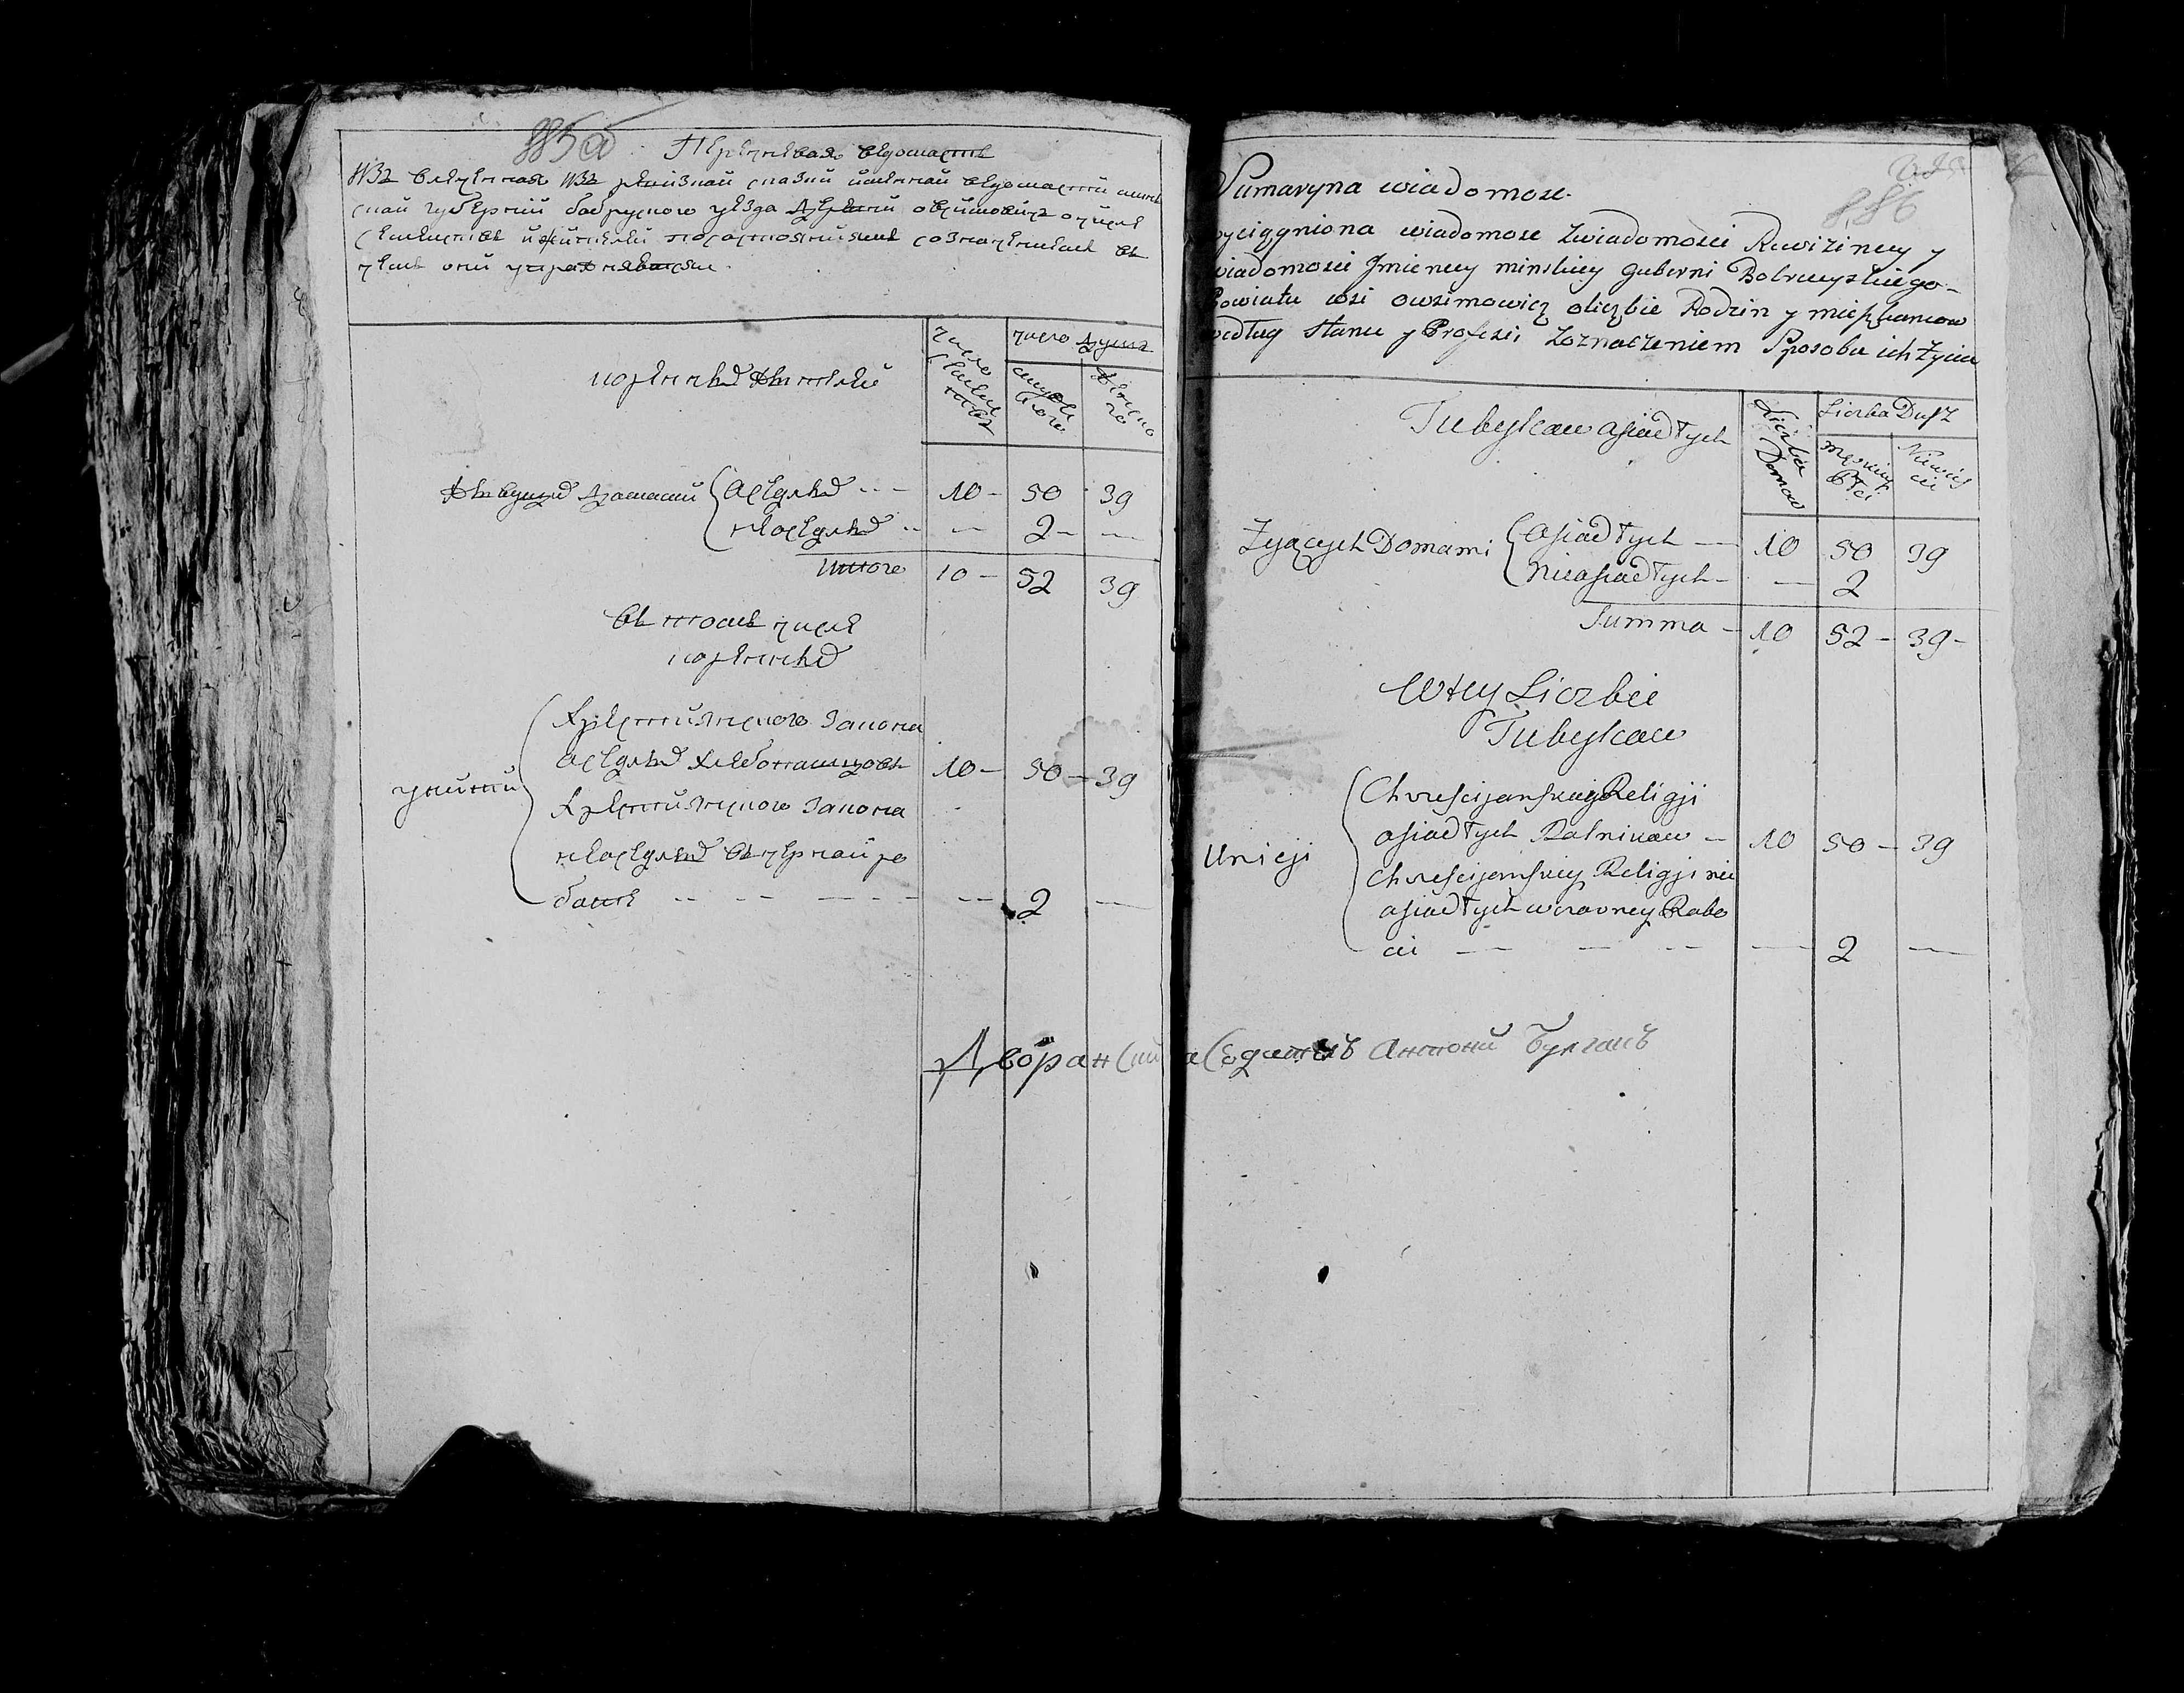 885 об
Перечневая ведомасть
Изъ влеченная Изъ ревизкай сказки именнай ведомасти минъ
скай губерний бабруского уезда деревни овсимовичъ очисле
семействъ ижителей посастояниямъ созначениемъ въ
чемъ они упражняваются
коренныхъ жителей
число семействъ
число душъ
мужеска
женско
живущихъ домами
оседлыхъ 10 50 39
неоседлыхъ — 2 —
Итого 10 52 39
въ томъ числе
коренныхъ
униты
християнского закона
оседлыхъ хлебопашцовъ 10 50 39
християнского закона
неоседлыхъ въчернай ра
боте — 2 —
886
Sumaryna wiadomosc
wyciągniona wiadomosc zwiadomosci Rewizineey y
wiadomosci Jmienney minskiey guberni Bobruyskiego
Powiatu wsi owsimowicz oliczbie Rodzin y mieszkancow
według stanu y Profesii zoznaczeniem Sposobu ich życia
Tubylcow osiadłych
Liczba Domow
Liczba Dusz
Męskiey Płci
Niewiesciey
Zyjących Domami
osiadłych 10 50 39
nieosiadłych — 2
Summa 10 52 39
Wtey Liczbie
Tubylcow
Unięji
Chrescijanskiey Religji
osiadłych Rolnikow 10 50 39
chrescijanskiey Religji nie
osiadłych wczorney Robo
cie — 2 —
Дворянский заседатель Антоний Булгакъ